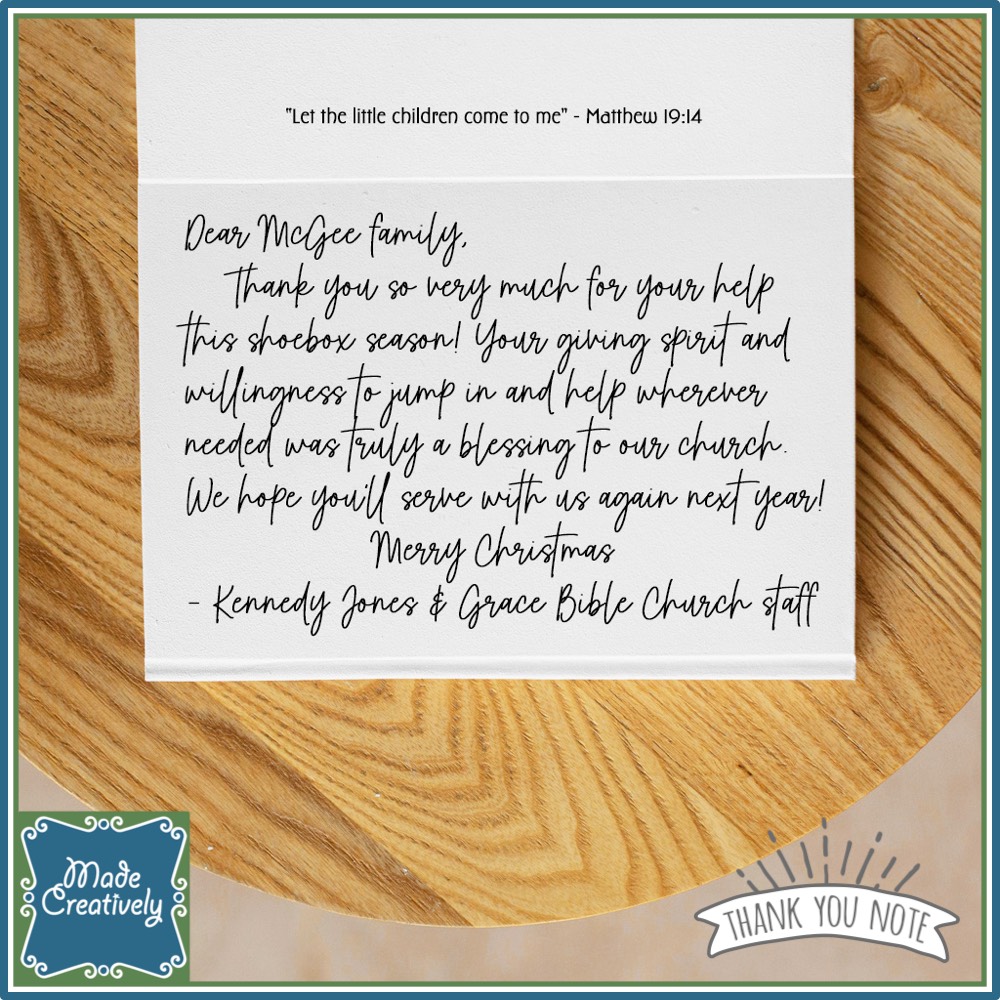 "Let the little children come to me" - Matthew 19:14
Dear McGee family,
Thank you so very much for your help
this shoebox season! Your giving spirit and
willingness to jump in and help wherever
needed was truly a blessing to our church.
We hope you'll serve with us again next year!
Merry Christmas
- Kennedy Jones & Grace Bible Church staff
Made
Creatively
THANK YOU NOTE